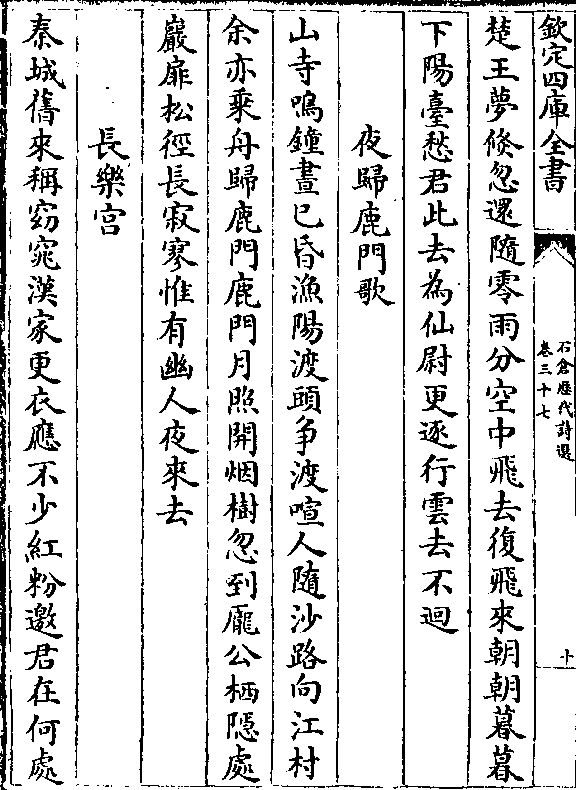 欽定四庫全書
石倉歷代詩選
卷三十七
十
楚王夢倐忽還隨零雨分空中飛去復飛來朝朝暮暮
下陽臺愁君此去為仙尉更逐行雲去不迴
夜歸鹿門歌
山寺鳴鐘晝已昏漁陽渡頭争渡喧人隨沙路向江村
余亦乘舟歸鹿門鹿門月照開烟樹忽到龎公栖隱處
巖扉松徑長寂寥惟有幽人夜來去
長樂宫
秦城舊來稱窈窕漢家更衣應不少紅粉邀君在何處